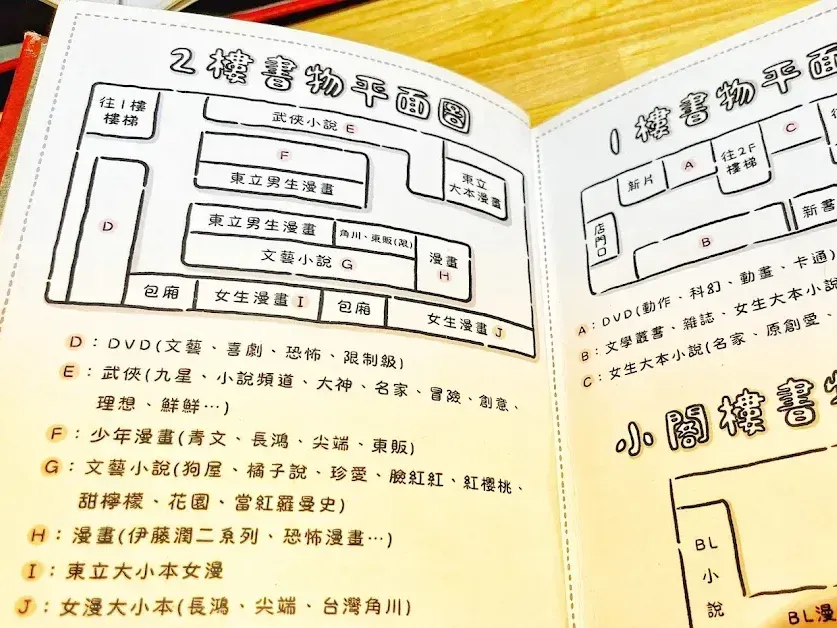 2樓書物平面圖
往1樓
樓梯
武俠小說 E
F
東立男生漫畫
東立
大本漫畫
D
東立男生漫畫
角川、東販(限)
文藝小說 G
漫畫
H
包廂
女生漫畫 I
包廂
女生漫畫 J
D：DVD(文藝、喜劇、恐怖、限制級)
E：武俠(九星、小說頻道、大神、名家、冒險、創意、
理想、鮮鮮…)
F：少年漫畫(青文、長鴻、尖端、東販)
G：文藝小說(狗屋、橘子說、珍愛、臉紅紅、紅櫻桃、
甜檸檬、花園、當紅羅曼史)
H：漫畫(伊藤潤二系列、恐怖漫畫…)
I：東立大小本女漫
J：女漫大小本(長鴻、尖端、台灣角川)
1樓書物平面
新片
A
往2F
樓梯
C
店門口
B
新書
A：DVD(動作、科幻、動畫、卡通)
B：文學叢書、雜誌、女生大本小說
C：女生大本小說(名家、原創愛、
小閣樓書物
BL
小
說
BL漫